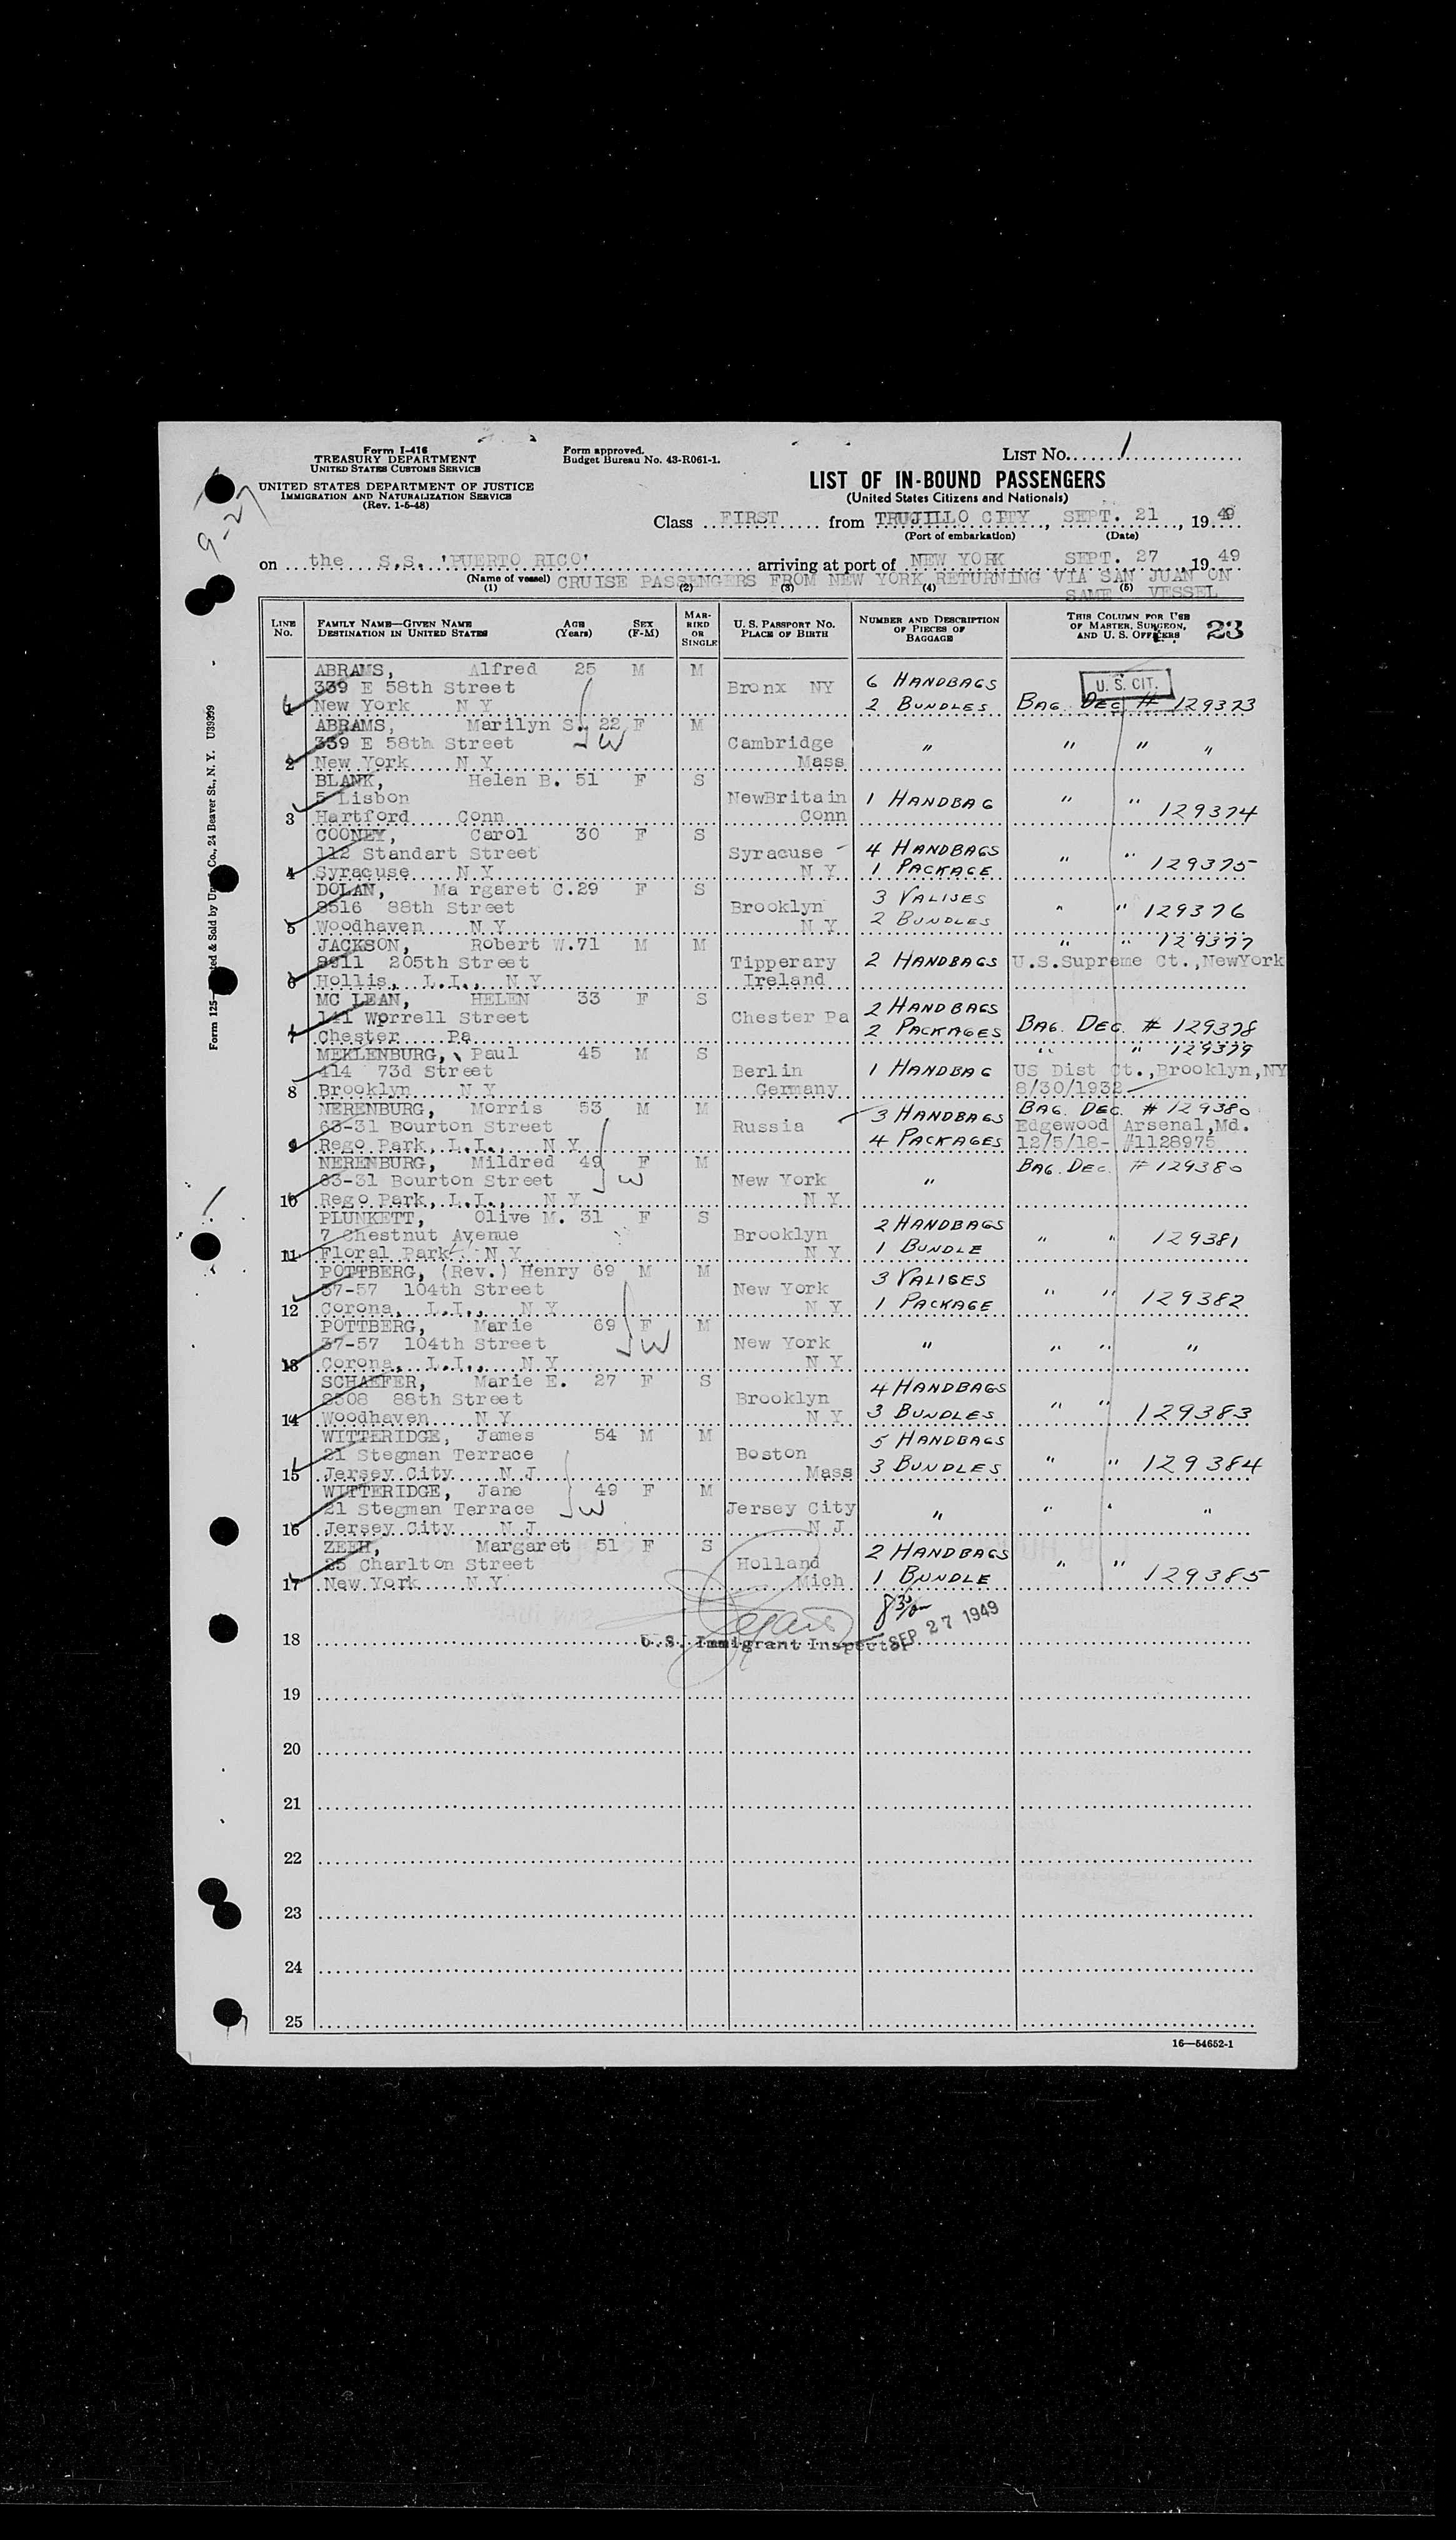 Form I-416
TREASURY DEPARTMENT
UNITED STATES CUSTOMS SERVICE
UNITED STATES DEPARTMENT OF JUSTICE
IMMIGRATION AND NATURALIZATION SERVICE
(Rev. 1-5-48)
Form approved.
Budget Bureau No. 43-R061-1.
LIST No. 1
LIST OF IN-BOUND PASSENGERS
(United States Citizens and Nationals)
9-27
Class FIRST from TRUJILLO CITY, SEPT. 21, 1949
(Port of embarkation) (Date)
on the S.S. 'PUERTO RICO' arriving at port of NEW YORK SEPT. 27, 1949
(Name of vessel) CRUISE PASSENGERS FROM NEW YORK RETURNING VIA SAN JUAN ON
(1) (2) (3) (4) SAME (5) VESSEL
LINE No.
FAMILY NAME—GIVEN NAME
DESTINATION IN UNITED STATES
AGE (Years)
SEX (F-M)
MARRIED OR SINGLE
U. S. PASSPORT NO.
PLACE OF BIRTH
NUMBER AND DESCRIPTION OF PIECES OF BAGGAGE
THIS COLUMN FOR USE OF MASTER, SURGEON, AND U. S. OFFICERS
23
ABRAMS, Alfred 25 M M
339 E 58th Street Bronx NY 6 HANDBAGS U. S. CIT.
1 New York N Y 2 BUNDLES BAG. DEC # 129373
ABRAMS, Marilyn S. 22 F M
339 E 58th Street W Cambridge " " " "
2 New York N Y Mass
BLANK, Helen B. 51 F S
5 Lisbon NewBritain 1 HANDBAG " " 129374
3 Hartford Conn Conn
COONEY, Carol 30 F S
112 Standart Street Syracuse 4 HANDBAGS
4 Syracuse N Y N Y 1 PACKAGE " " 129375
DOLAN, Ma rgaret C.29 F S 3 VALISES
8516 88th Street Brooklyn 2 BUNDLES " " 129376
5 Woodhaven N Y N Y
JACKSON, Robert W.71 M M " " 129377
8911 205th Street Tipperary 2 HANDBAGS U.S.Supreme Ct.,NewYork
6 Hollis, L.I., N Y Ireland
MC LEAN, HELEN 33 F S 2 HANDBAGS
141 Worrell Street Chester Pa 2 PACKAGES BAG. DEC. # 129378
7 Chester Pa
MEKLENBURG, Paul 45 M S " " 129379
414 73d Street Berlin 1 HANDBAG US Dist Ct.,Brooklyn,NY
8 Brooklyn N Y Germany 8/30/1932
NERENBURG, Morris 53 M M 3 HANDBAGS BAG. DEC. # 129380
63-31 Bourton Street Russia Edgewood Arsenal,Md.
9 Rego Park, L.I., N Y 4 PACKAGES 12/5/18- #1128975
NERENBURG, Mildred 49 F M BAG. DEC. # 129380
63-31 Bourton Street W New York "
10 Rego Park, L.I., N Y N Y
PLUNKETT, Olive M. 31 F S 2 HANDBAGS
7 Chestnut Avenue Brooklyn 1 BUNDLE " " 129381
11 Floral Park N Y N Y
POTTBERG, (Rev.) Henry 69 M M 3 VALISES
37-57 104th Street New York " " 129382
12 Corona, L.I., N Y N Y 1 PACKAGE
POTTBERG, Marie 69 F M
37-57 104th Street W New York " " " "
13 Corona, L.I., N Y N Y
SCHAEFER, Marie E. 27 F S 4 HANDBAGS
8508 88th Street Brooklyn
14 Woodhaven N Y N Y 3 BUNDLES " " 129383
WITTERIDGE, James 54 M M 5 HANDBAGS
21 Stegman Terrace Boston
15 Jersey City N J Mass 3 BUNDLES " " 129384
WITTERIDGE, Jane 49 F M
21 Stegman Terrace W Jersey City " " " "
16 Jersey City N J N J
ZEEH, Margaret 51 F S 2 HANDBAGS
25 Charlton Street Holland
17 New York N Y Mich 1 BUNDLE " " 129385
18 U.S. Immigrant Inspector SEP 27 1949
19
20
21
22
23
24
25
16—54652-1